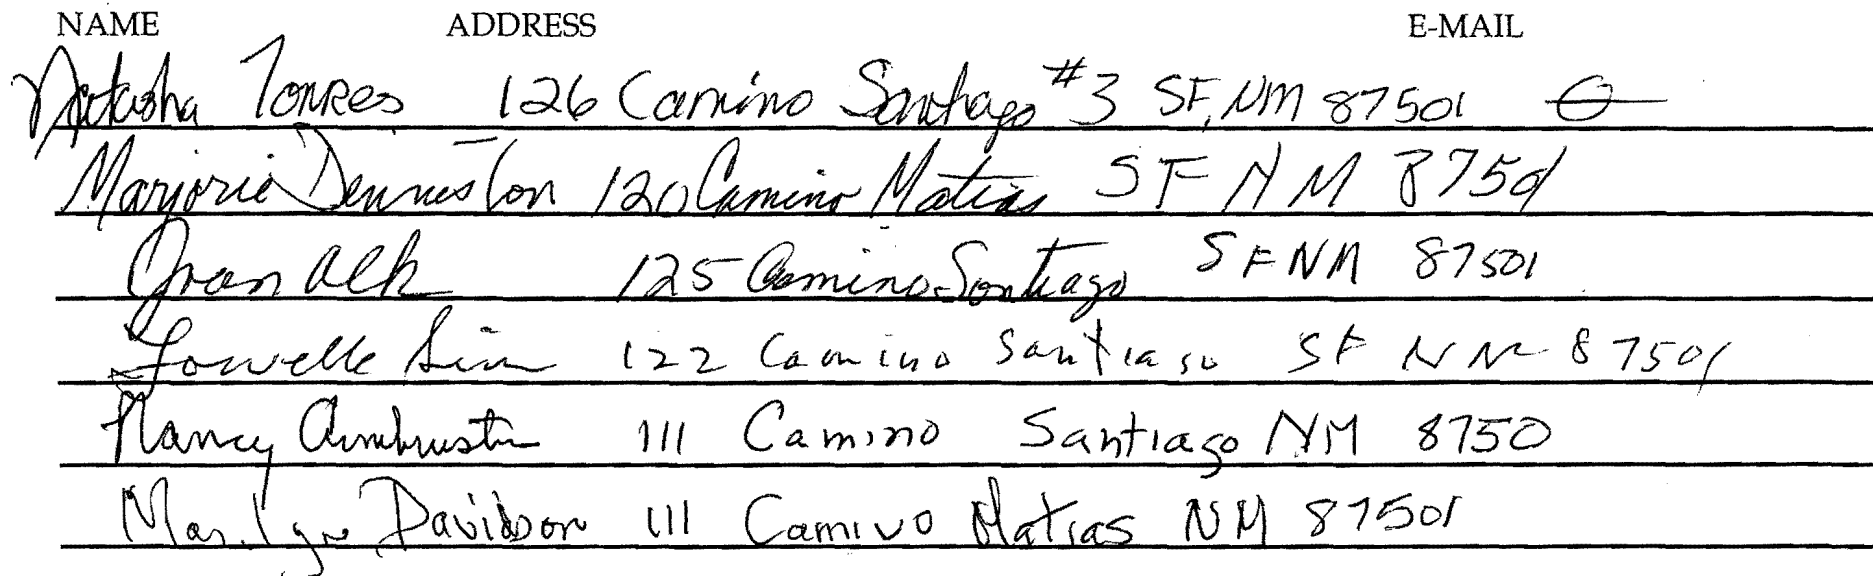 NAME ADDRESS E-MAIL
Natasha Torres 126 Camino Santiago #3 SF, NM 87501
Marjorie Denniston 120 Camino Matias SF NM 87501
Joan 125 Camino Santiago SF NM 87501
122 Camino Santiago SF NM 87501
Nancy Armbruster 111 Camino Santiago NM 8750
Marilyn Davidson 111 Camino Matias NM 87501